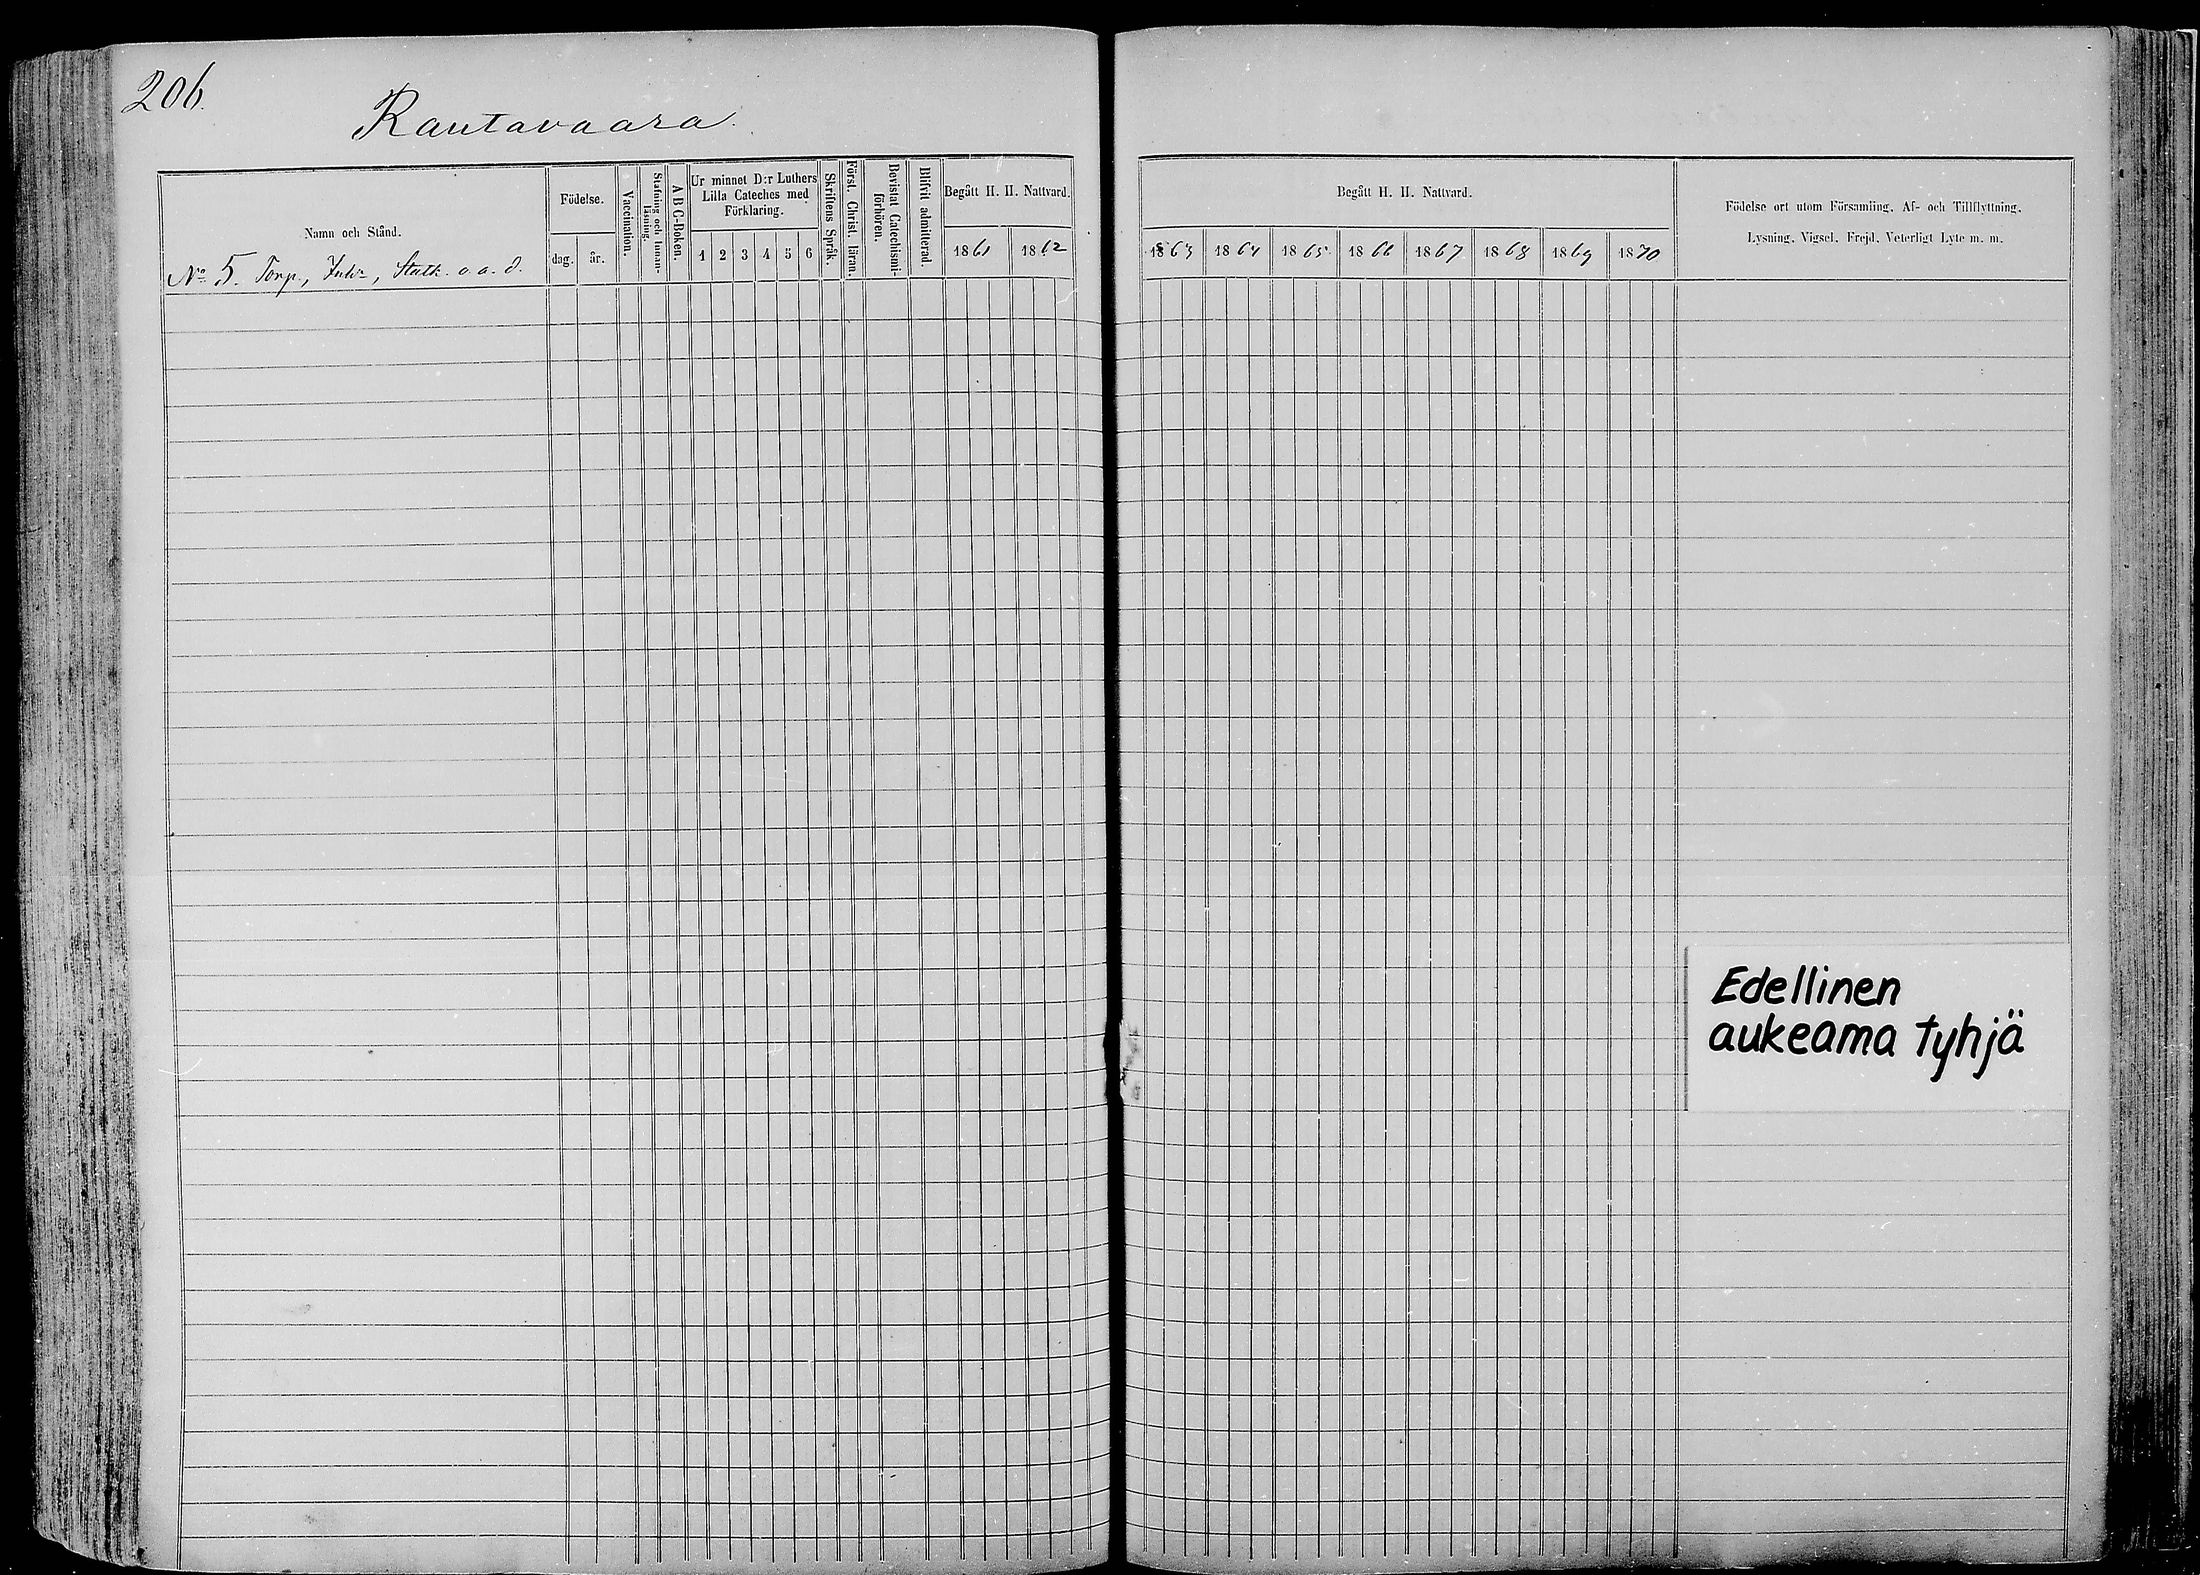 206.
Rautavaara.
Namn och Stånd.
No 5. Torp, Inh:r, Statk. o. a. d.
Födelse.
dag.
år.
Vaccination.
Stafning och Innan-
läsning.
A B C-Boken.
Ur minnet D:r Luthers
Lilla Cateches med
Förklaring.
1 2 3 4 5 6
Skriftens Språk.
Först. Christ. läran.
Bevistat Catechismi-
förhören.
Blifvit admitterad.
Begått H. H. Nattvard.
1861 1862
Begått H. H. Nattvard.
1863 1864 1865 1866 1867 1868 1869 1870
Födelse ort utom Församling, Af- och Tillflyttning,
Lysning, Vigsel, Frejd, Veterligt Lyte m. m.
Edellinen
aukeama tyhjä